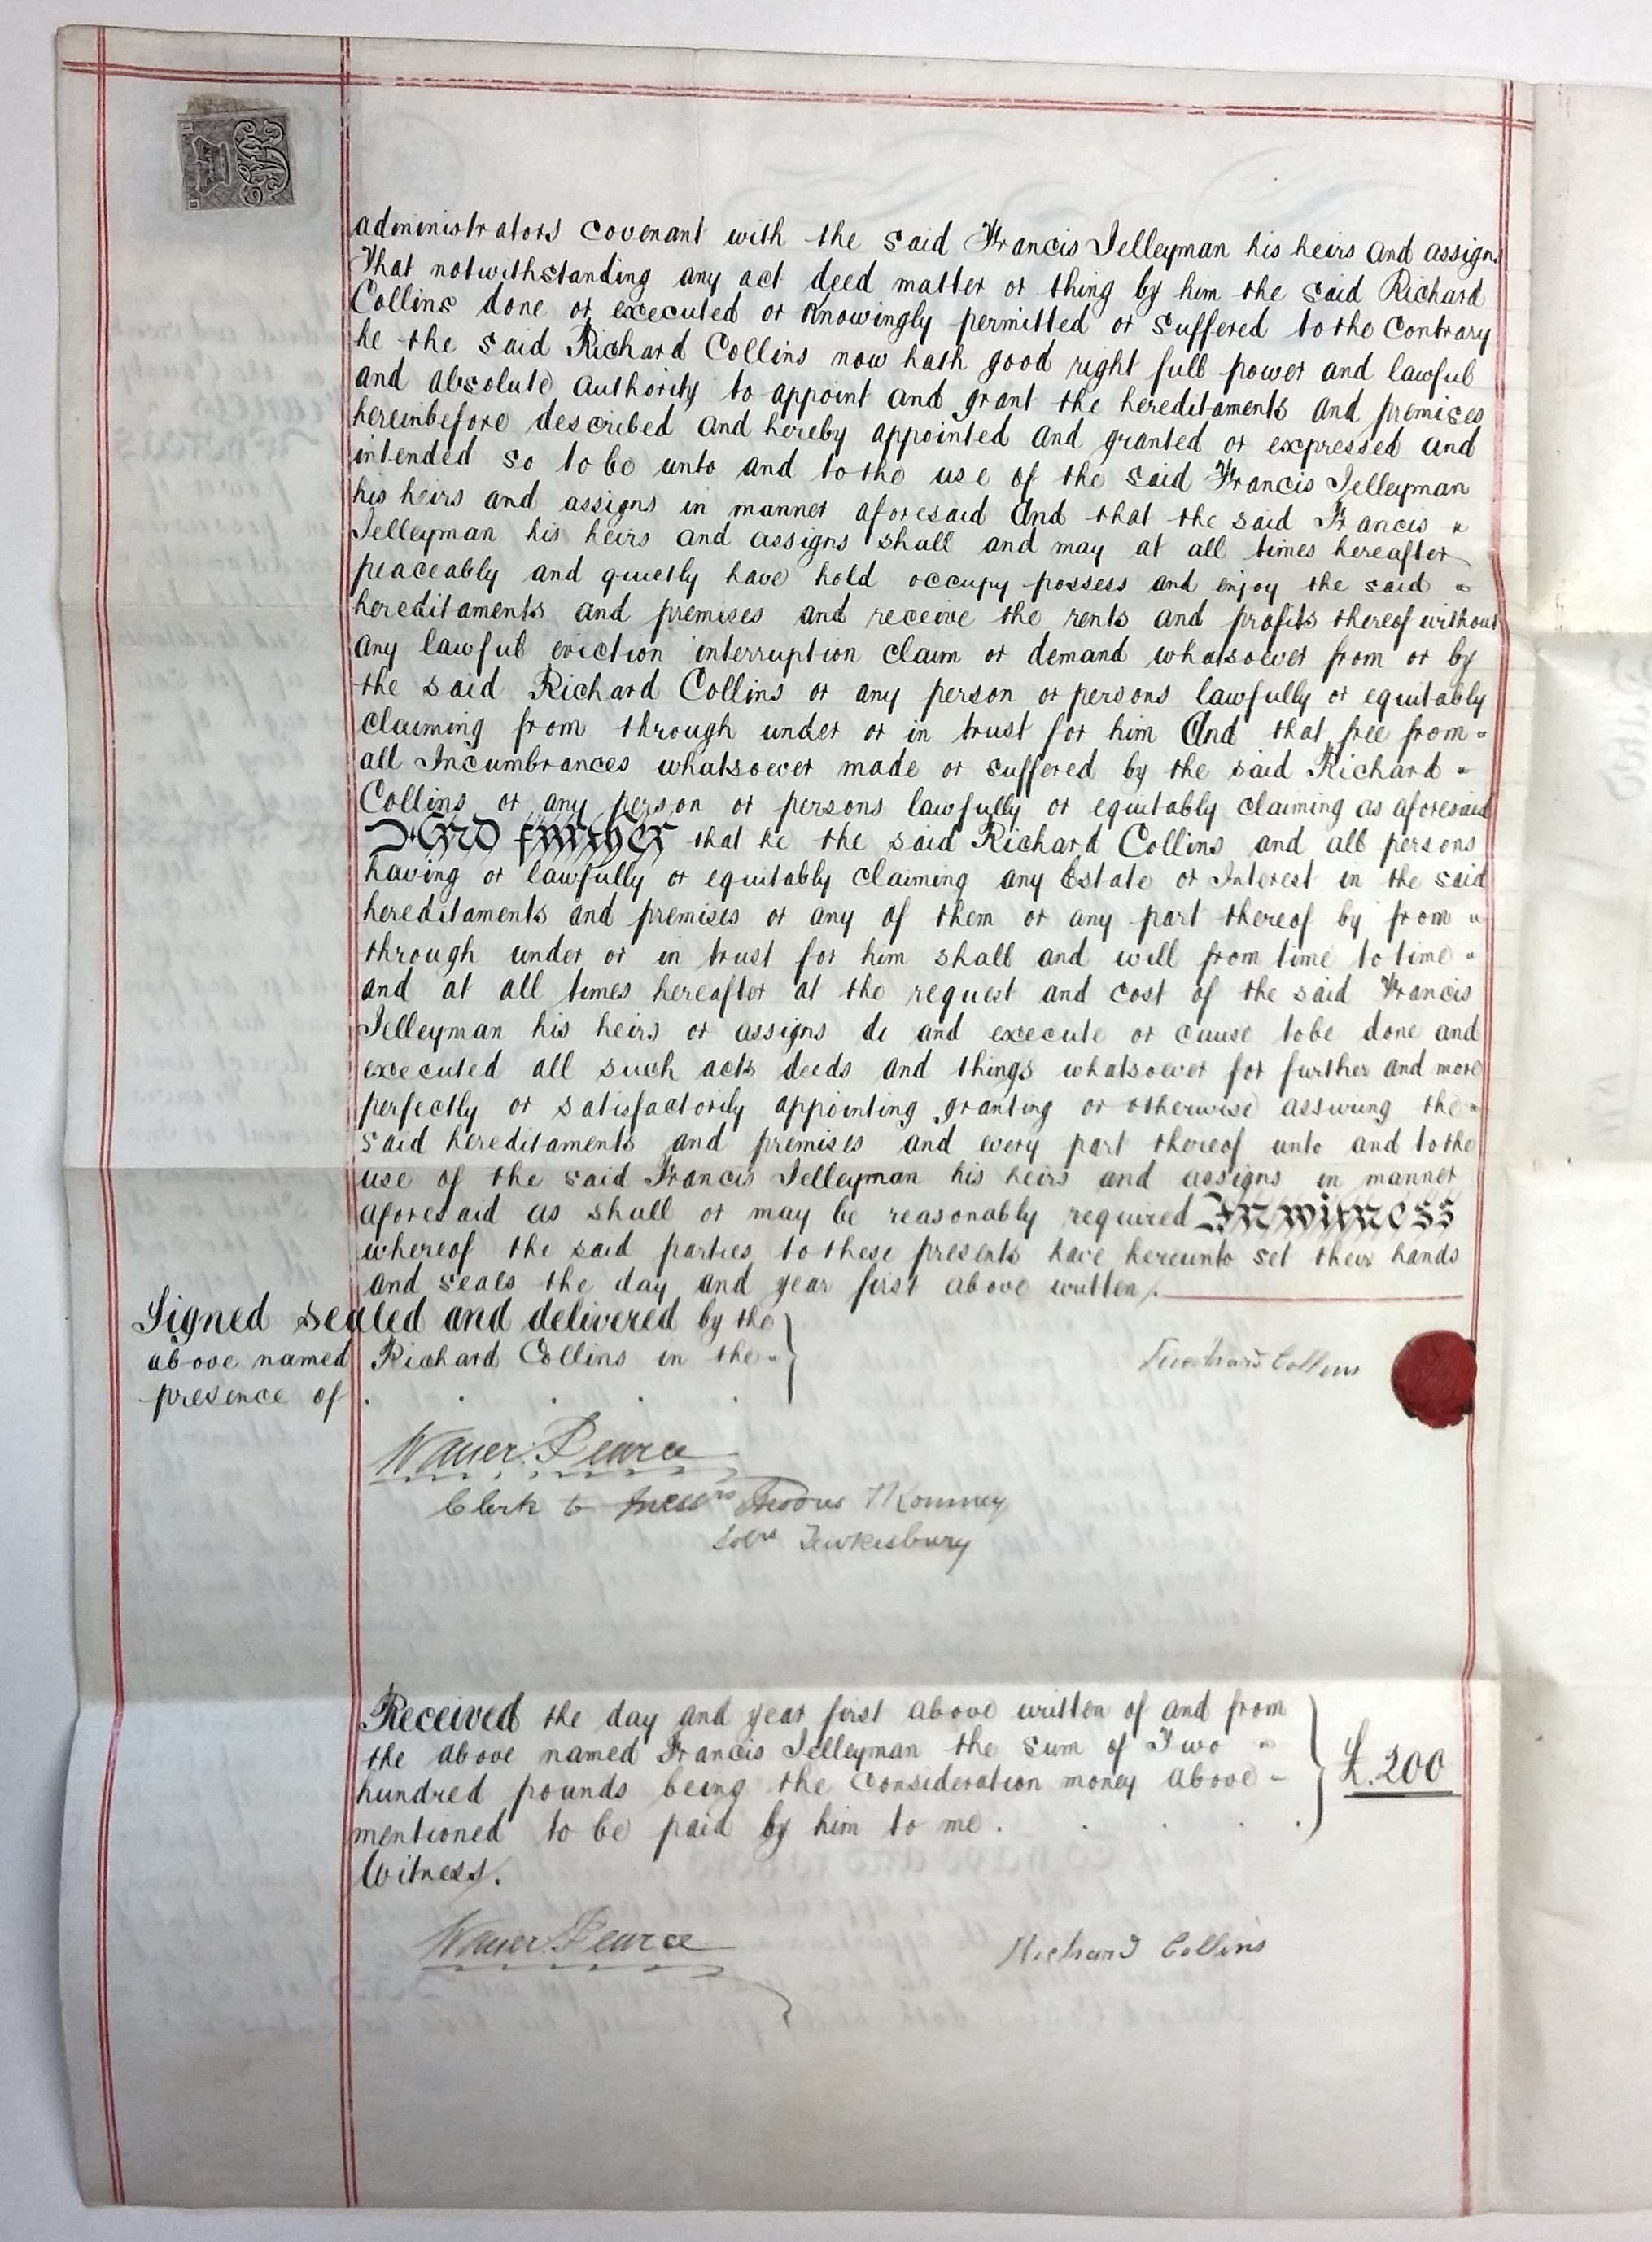 administrators covenant with the said Francis Jelleyman his heirs and assigns
That notwithstanding any act deed matter or thing by him the said Richard
Collins done or executed or knowingly permitted or suffered to the contrary
he the said Richard Collins now hath good right full power and lawful
and absolute authority to appoint and grant the hereditaments and premises
hereinbefore described and hereby appointed and granted or expressed and
intended so to be unto and to the use of the said Francis Jelleyman
his heirs and assigns in manner aforesaid And that the said Francis
Jelleyman his heirs and assigns shall and may at all times hereafter
peaceably and quietly have hold occupy possess and enjoy the said
hereditaments and premises and receive the rents and profits thereof without
any lawful eviction interruption claim or demand whatsoever from or by
the said Richard Collins or any person or persons lawfully or equitably
claiming from through under or in trust for him And that free from
all Incumbrances whatsoever made or suffered by the said Richard
Collins or any person or persons lawfully or equitably claiming as aforesaid
And further that he the said Richard Collins and all persons
having or lawfully or equitably claiming any Estate or Interest in the said
hereditaments and premises or any of them or any part thereof by from
through under or in trust for him shall and will from time to time
and at all times hereafter at the request and cost of the said Francis
Jelleyman his heirs or assigns do and execute or cause to be done and
executed all such acts deeds and things whatsoever for further and more
perfectly or satisfactorily appointing granting or otherwise assuring the
said hereditaments and premises and every part thereof unto and to the
use of the said Francis Jelleyman his heirs and assigns in manner
aforesaid as shall or may be reasonably required In witness
whereof the said parties to these presents have hereunto set their hands
and seals the day and year first above written/.
Signed sealed and delivered by the
above named Richard Collins in the
presence of
Richard Collins
Pearce
Clerk to Messrs Romney
Solrs Tewkesbury
Received the day and year first above written of and from
the above named Francis Jelleyman the sum of Two
hundred pounds being the Consideration money above
mentioned to be paid by him to me.
£.200
Witness.
Pearce
Richard Collins